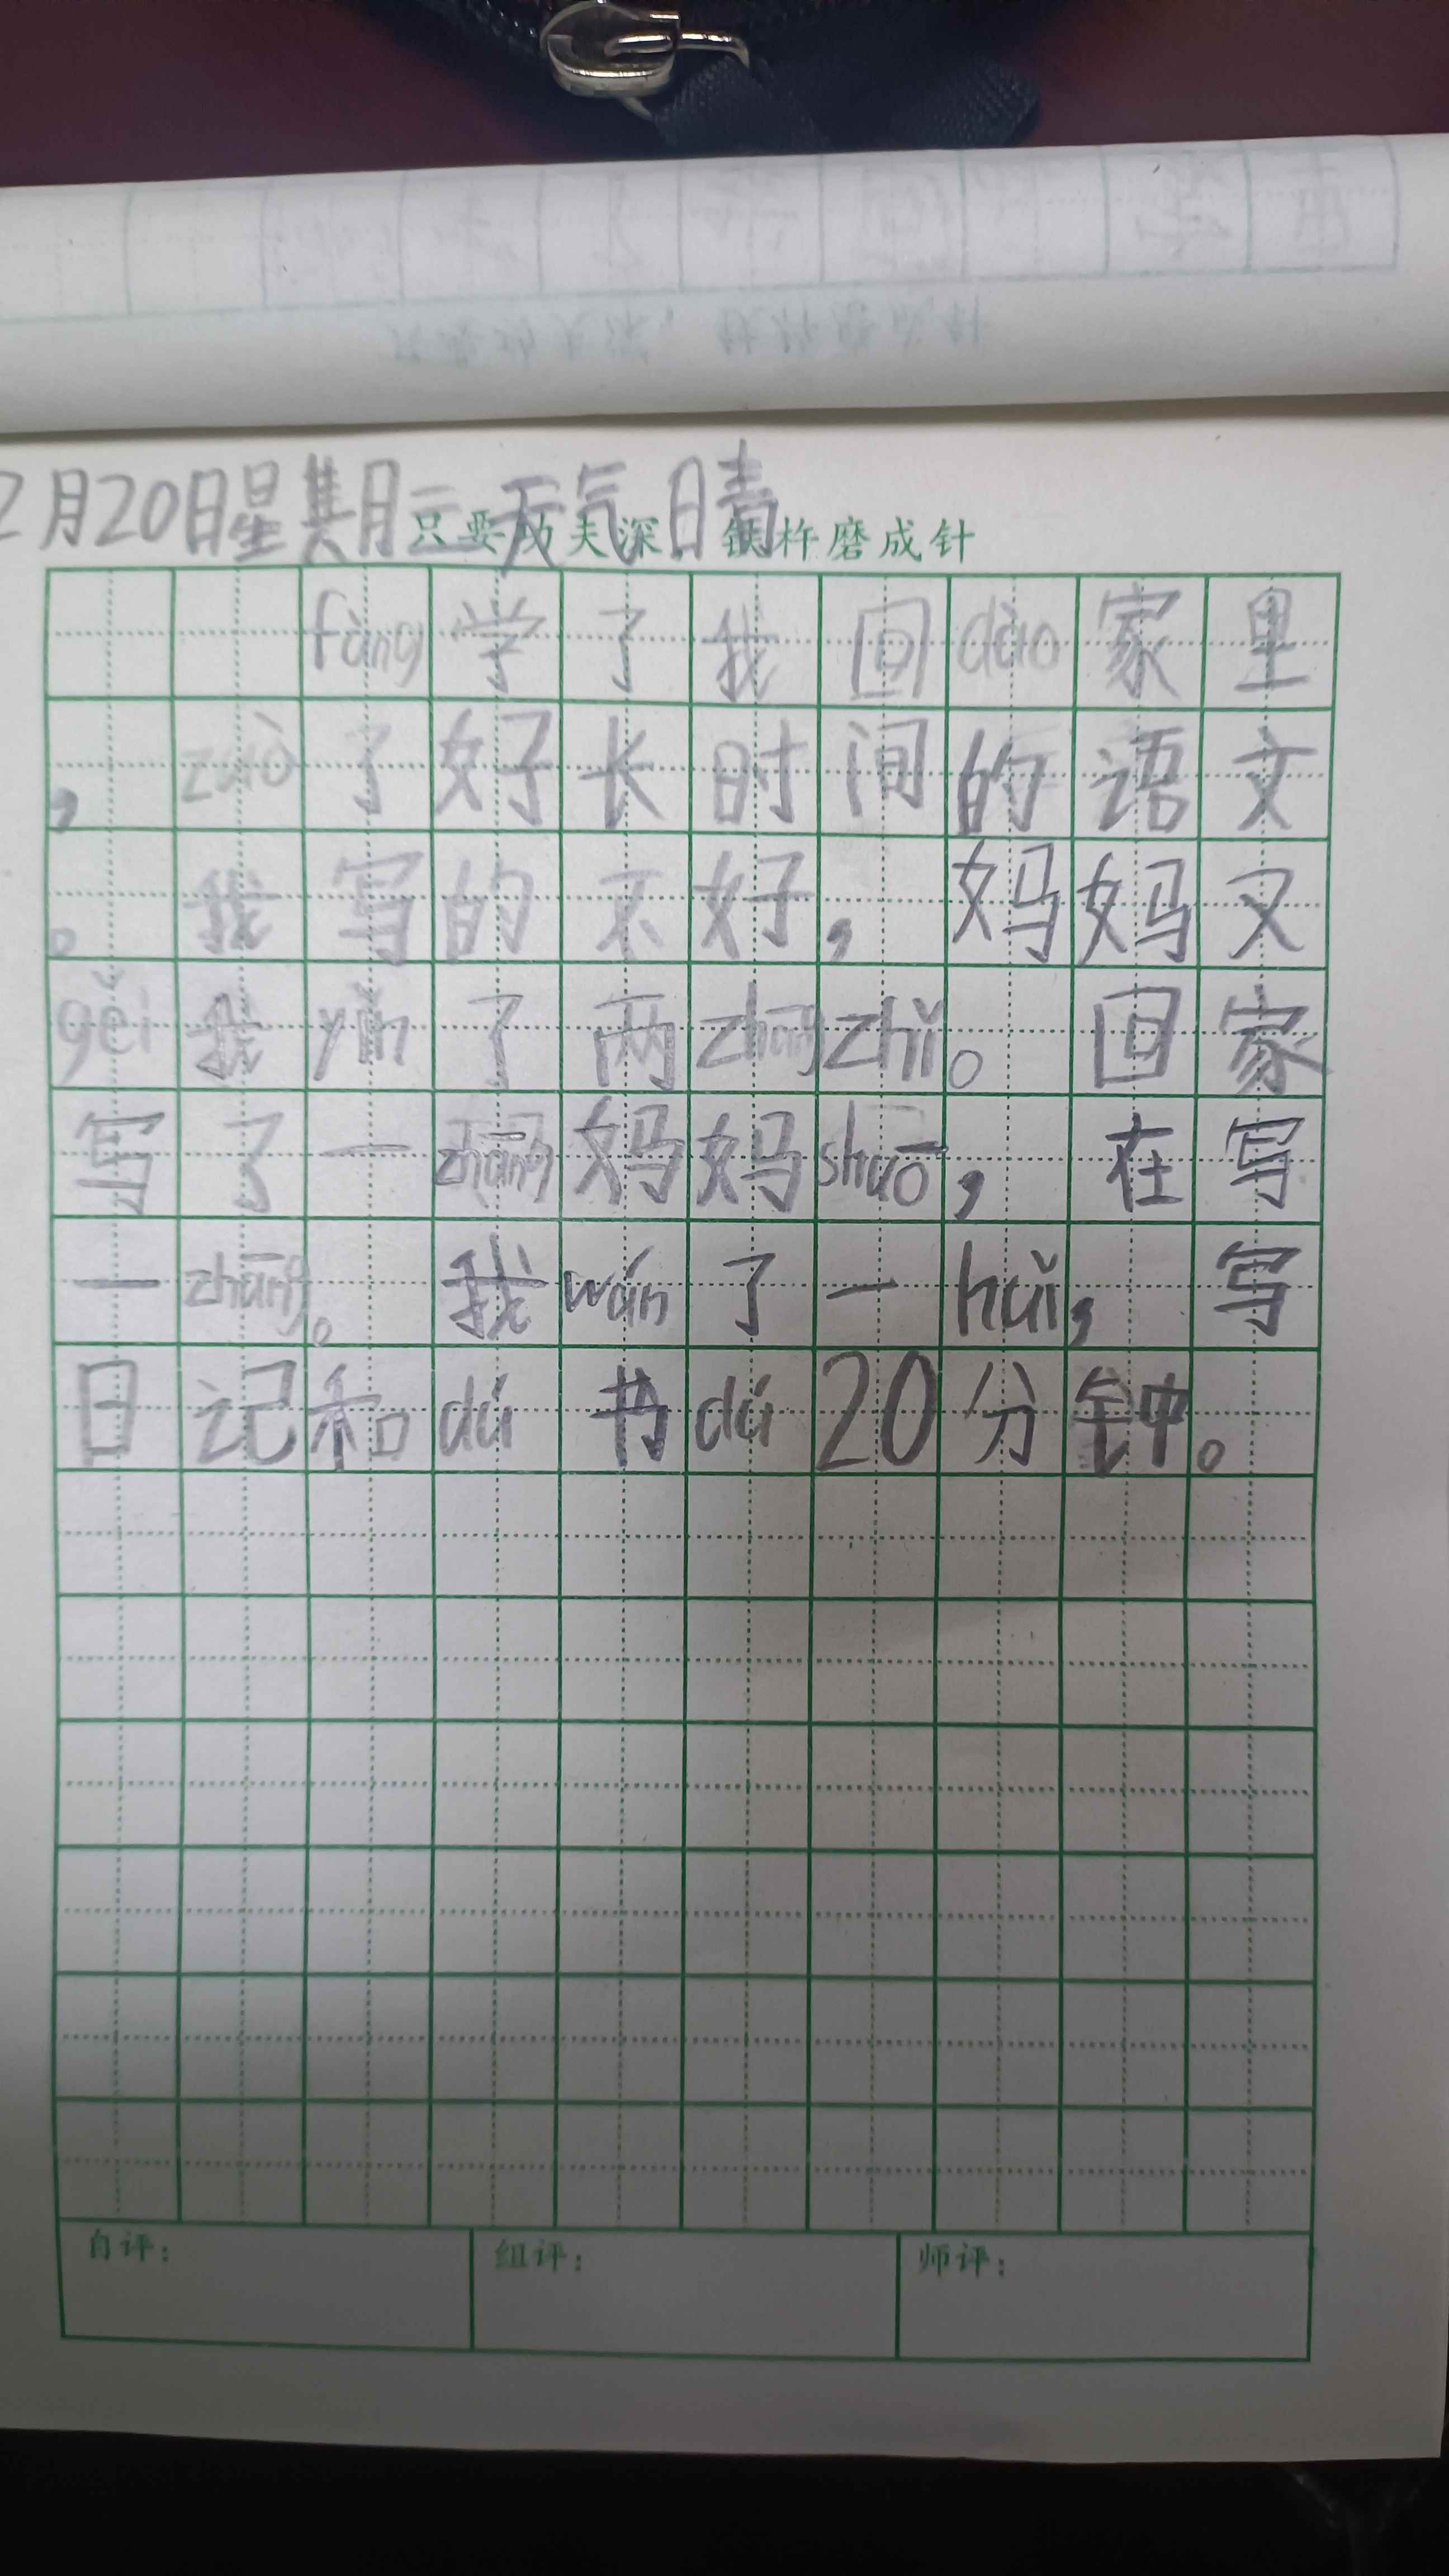 2月20日星期三天气晴
只要功夫深，铁杵磨成针
fàng学了我回dào家里
，zuò了好长时间的语文
。我写的不好，妈妈又
gěi我yǐn了两zhāngzhǐ。回家
写了一zhāng妈妈shuō，在写
一zhāng。我wán了一huǐ，写
日记和dú书dú20分钟。
自评： 组评： 师评：